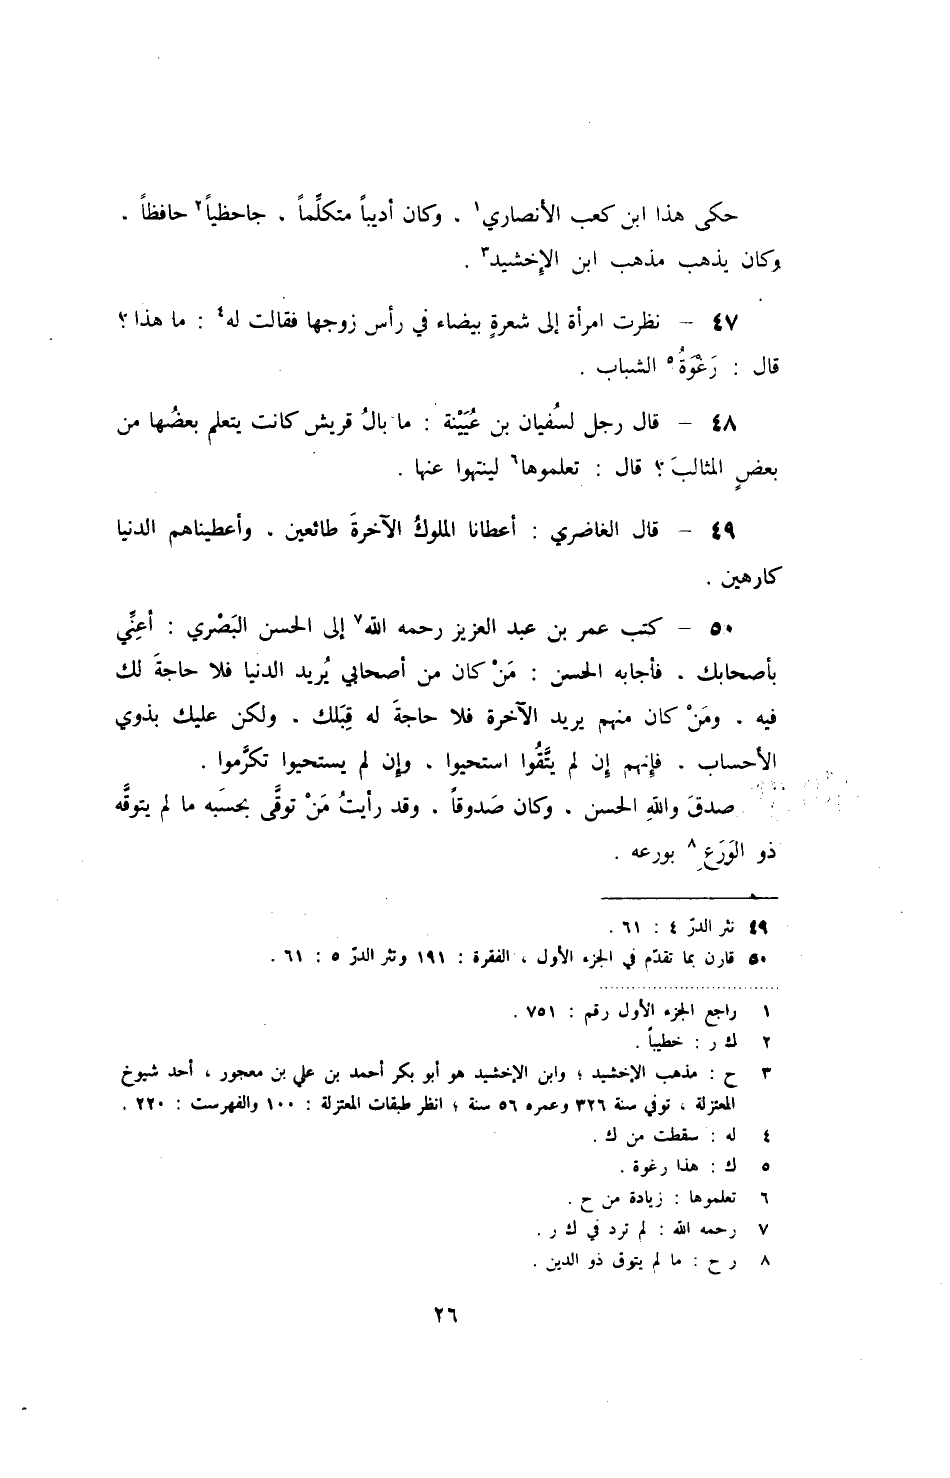 حكى هذا ابن كعب الأنصاري١ . وكان أديباً متكلِّماً . جاحظياً٢ حافظاً .
وكان يذهب مذهب ابن الإخشيد٣ .
٤٧ – نظرت امرأة إلى شعرةٍ بيضاء في رأس زوجها فقالت له٤ : ما هذا ؟
قال : رَغْوَةُ٥ الشباب .
٤٨ – قال رجل لسُفيان بن عُيَيْنة : ما بالُ قريش كانت يتعلم بعضُها من
بعضٍ المثالبَ ؟ قال : تعلموها٦ لينتهوا عنها .
٤٩ – قال الغاضري : أعطانا الملوكُ الآخرةَ طائعين . وأعطيناهم الدنيا
كارهين .
٥٠ – كتب عمر بن عبد العزيز رحمه الله٧ إلى الحسن البَصْري : أعِنِّي
بأصحابك . فأجابه الحسن : مَنْ كان من أصحابي يُريد الدنيا فلا حاجةَ لك
فيه . ومَنْ كان منهم يريد الآخرة فلا حاجةَ له قِبَلك . ولكن عليك بذوي
الأحساب . فإنهم إن لم يتَّقُوا استحيوا . وإن لم يستحيوا تكرَّموا .
صدقَ واللهِ الحسن . وكان صَدوقاً . وقد رأيتُ مَنْ توقَّى بحسَبه ما لم يتوقَّه
ذو الوَرَعِ٨ بورعه .
٤٩ نثر الدرّ ٤ : ٦١ .
٥٠ قارن بما تقدّم في الجزء الأول ، الفقرة : ١٩١ ونثر الدرّ ٥ : ٦١ .
١ راجع الجزء الأول رقم : ٧٥١ .
٢ ك ر : خطيباً .
٣ ح : مذهب الإخشيد ؛ وابن الإخشيد هو أبو بكر أحمد بن علي بن معجور ، أحد شيوخ
المعتزلة ، توفي سنة ٣٢٦ وعمره ٥٦ سنة ؛ انظر طبقات المعتزلة : ١٠٠ والفهرست : ٢٢٠ .
٤ له : سقطت من ك .
٥ ك : هذا رغوة .
٦ تعلموها : زيادة من ح .
٧ رحمه الله : لم ترد في ك ر .
٨ ر ح : ما لم يتوق ذو الدين .
٢٦